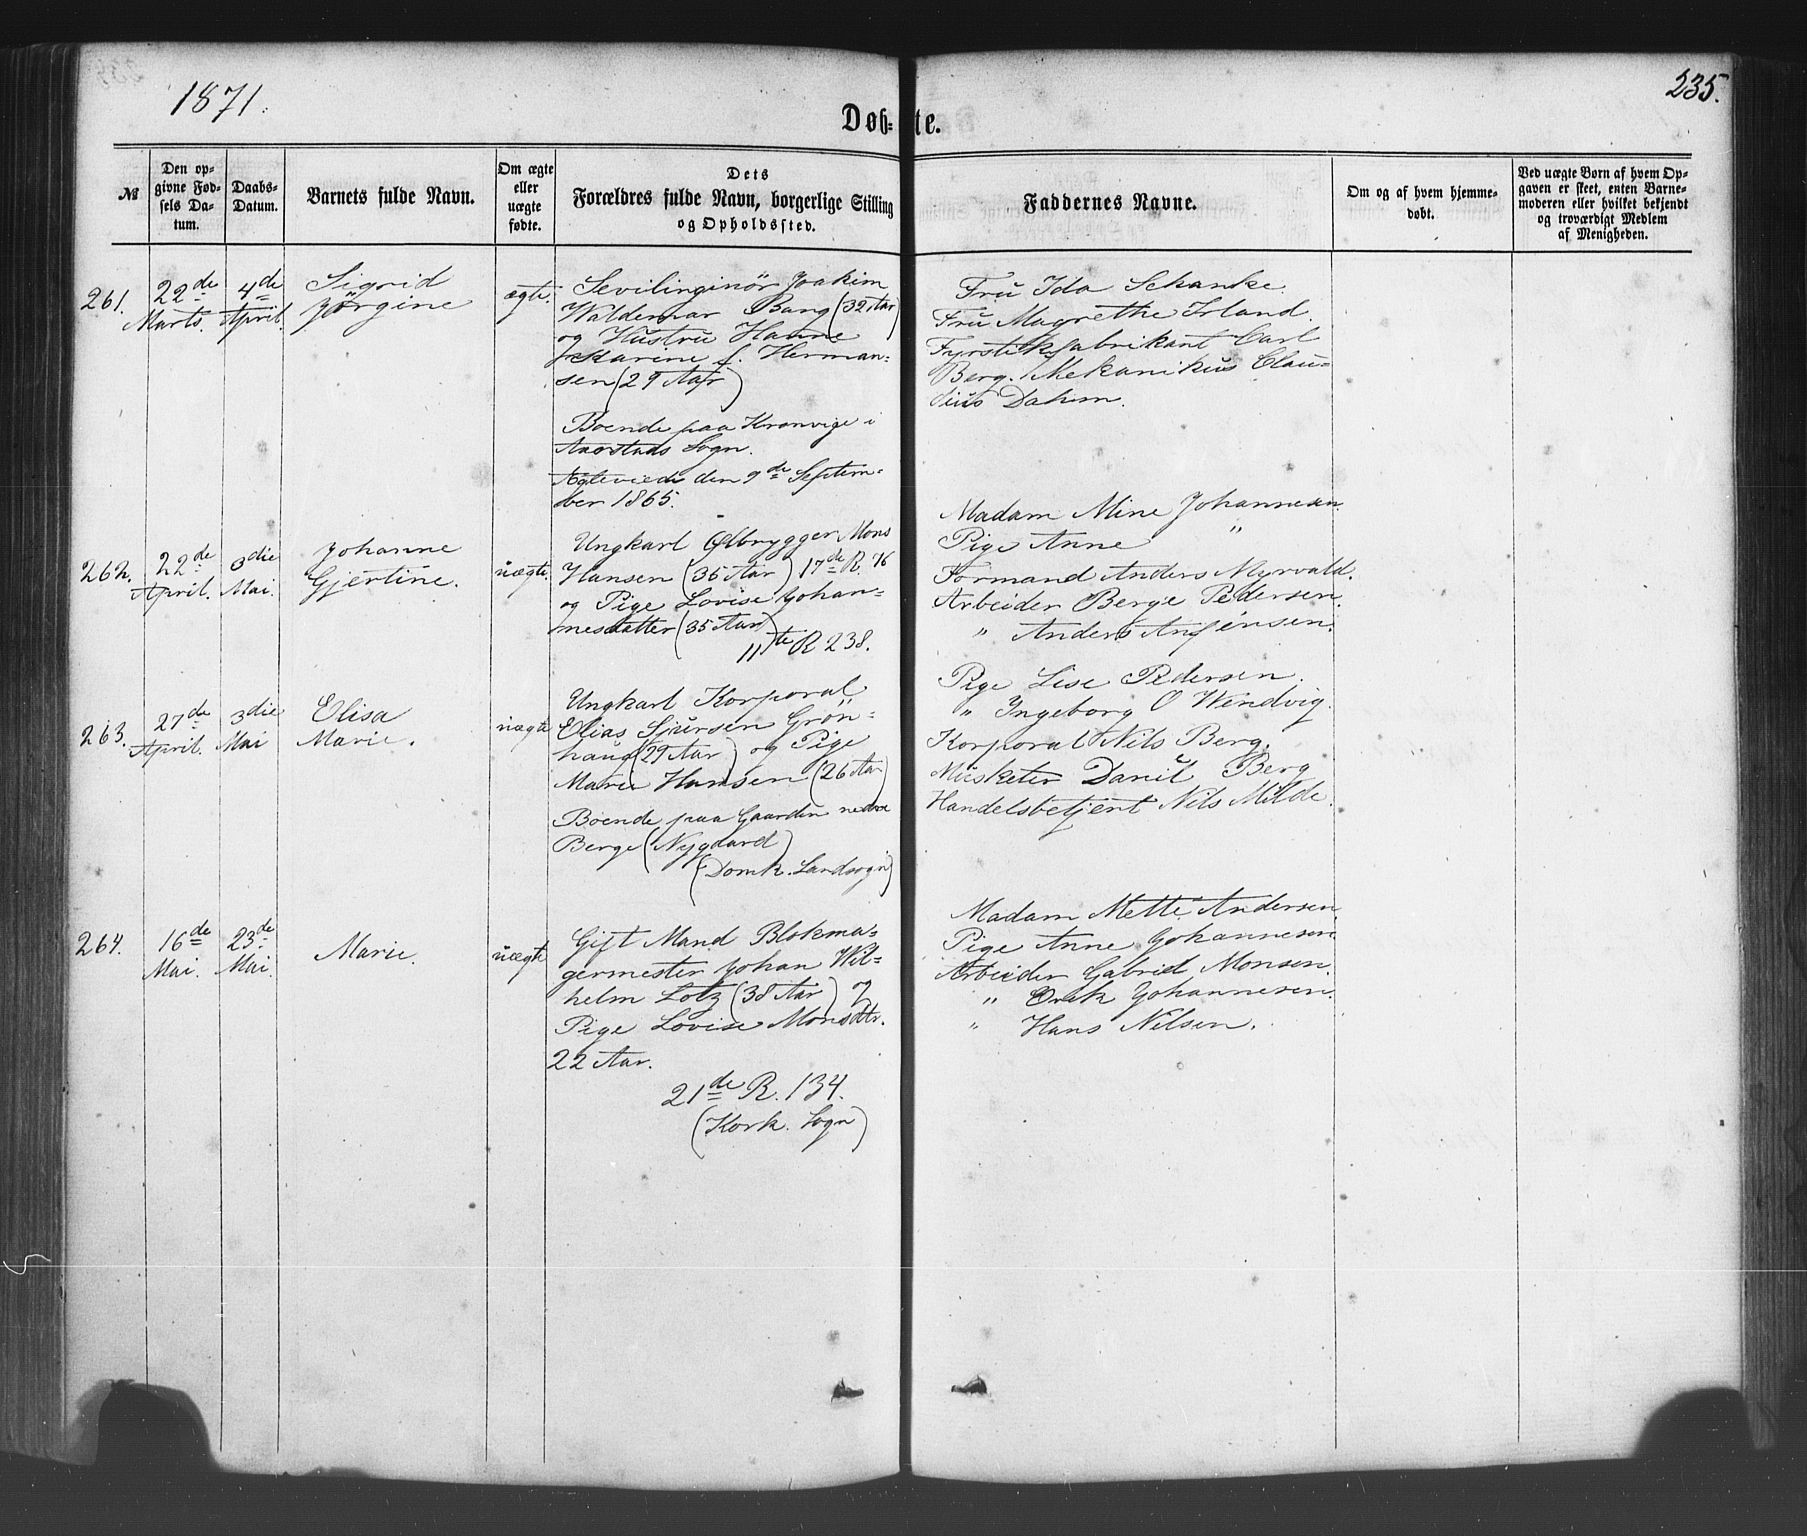 1871.
235.
Døb-te.
№
Den op-
givne Fød-
sels Da-
tum.
Daabs-
Datum.
Barnets fulde Navn.
Om ægte
eller
uægte
fødte.
Dets
Forældres fulde Navn, borgerlige Stilling
og Opholdssted.
Faddernes Navne.
Om og af hvem hjemme-
døbt.
Ved uægte Børn af hvem Op-
gaven er skeet, enten Barne-
moderen eller hvilket bekjendt
og troværdigt Medlem
af Menigheden.
261.
22de
Marts.
4de
April.
Sigrid
Jørgine
ægte.
Sevilinginör Joakim
Waldemar Bang (32 Aar)
og Hustru Hanne
Karine f. Herman-
sen (29 Aar)
Boende paa Kronvige i
Aarstads Sogn.
Ægteviede den 9de Septem-
ber 1865.
Fru Ida Schanke.
Fru Magrethe Irland.
Fyrstikfabrikant Carl
Berg. Mekanikus Clau-
dius Dahm.
262.
22de
April.
3die
Mai.
Johanne
Gjertine.
uægte.
Ungkarl Ølbrygger Mons
Hansen (35 Aar) 17de R. 76
og Pige Lovise Johan-
nesdatter (35 Aar)
11te R 238.
Madam Mine Johannesen
Pige Anne "
Formand Anders Myrvald.
Arbeider Berge Pedersen.
" Anders
263.
27de
April.
3die
Mai
Elisa
Marie.
uægte
Ungkarl Korporal
Elias Sjursen Grön-
haug (29 Aar) og Pige
Marie Hansen (26 Aar)
Boende paa Gaarden nedre
Berge (Nygaard)
(Domk. Landsogn)
Pige Lise Pedersen.
" Ingeborg O Wendvig.
Korporal Nils Berg.
Musketer Danil Berg
Handelsbetjent Nils Milde.
264.
16de
Mai.
23de
Mai.
Marie.
uægte
Gift Mand Blokma-
germester Johan Wil-
helm Lotz (38 Aar) og
Pige Lovise Monsdtr.
22 Aar.
21de R. 134.
(Kork. Sogn)
Madam Mette Andersen.
Pige Anne Johannesen
Arbeider Gabriel Monsen.
" Johannesen.
" Hans Nilsen.